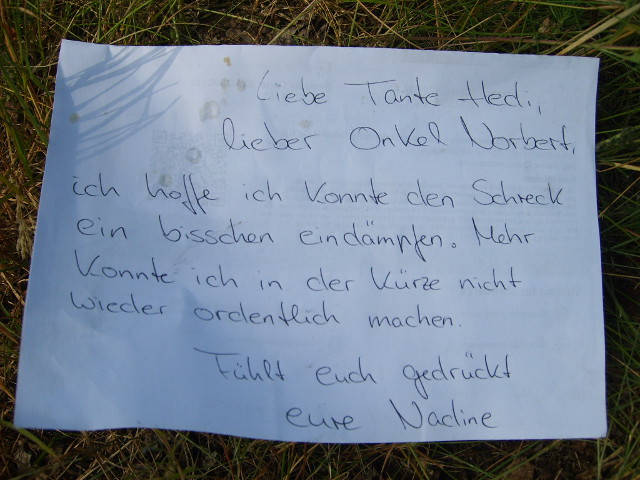 Liebe Tante Hedi,
lieber Onkel Norbert,
ich hoffe ich konnte den Schreck
ein bisschen eindämpfen. Mehr
konnte ich in der Kürze nicht
wieder ordentlich machen.
Fühlt euch gedrückt
eure Nadine